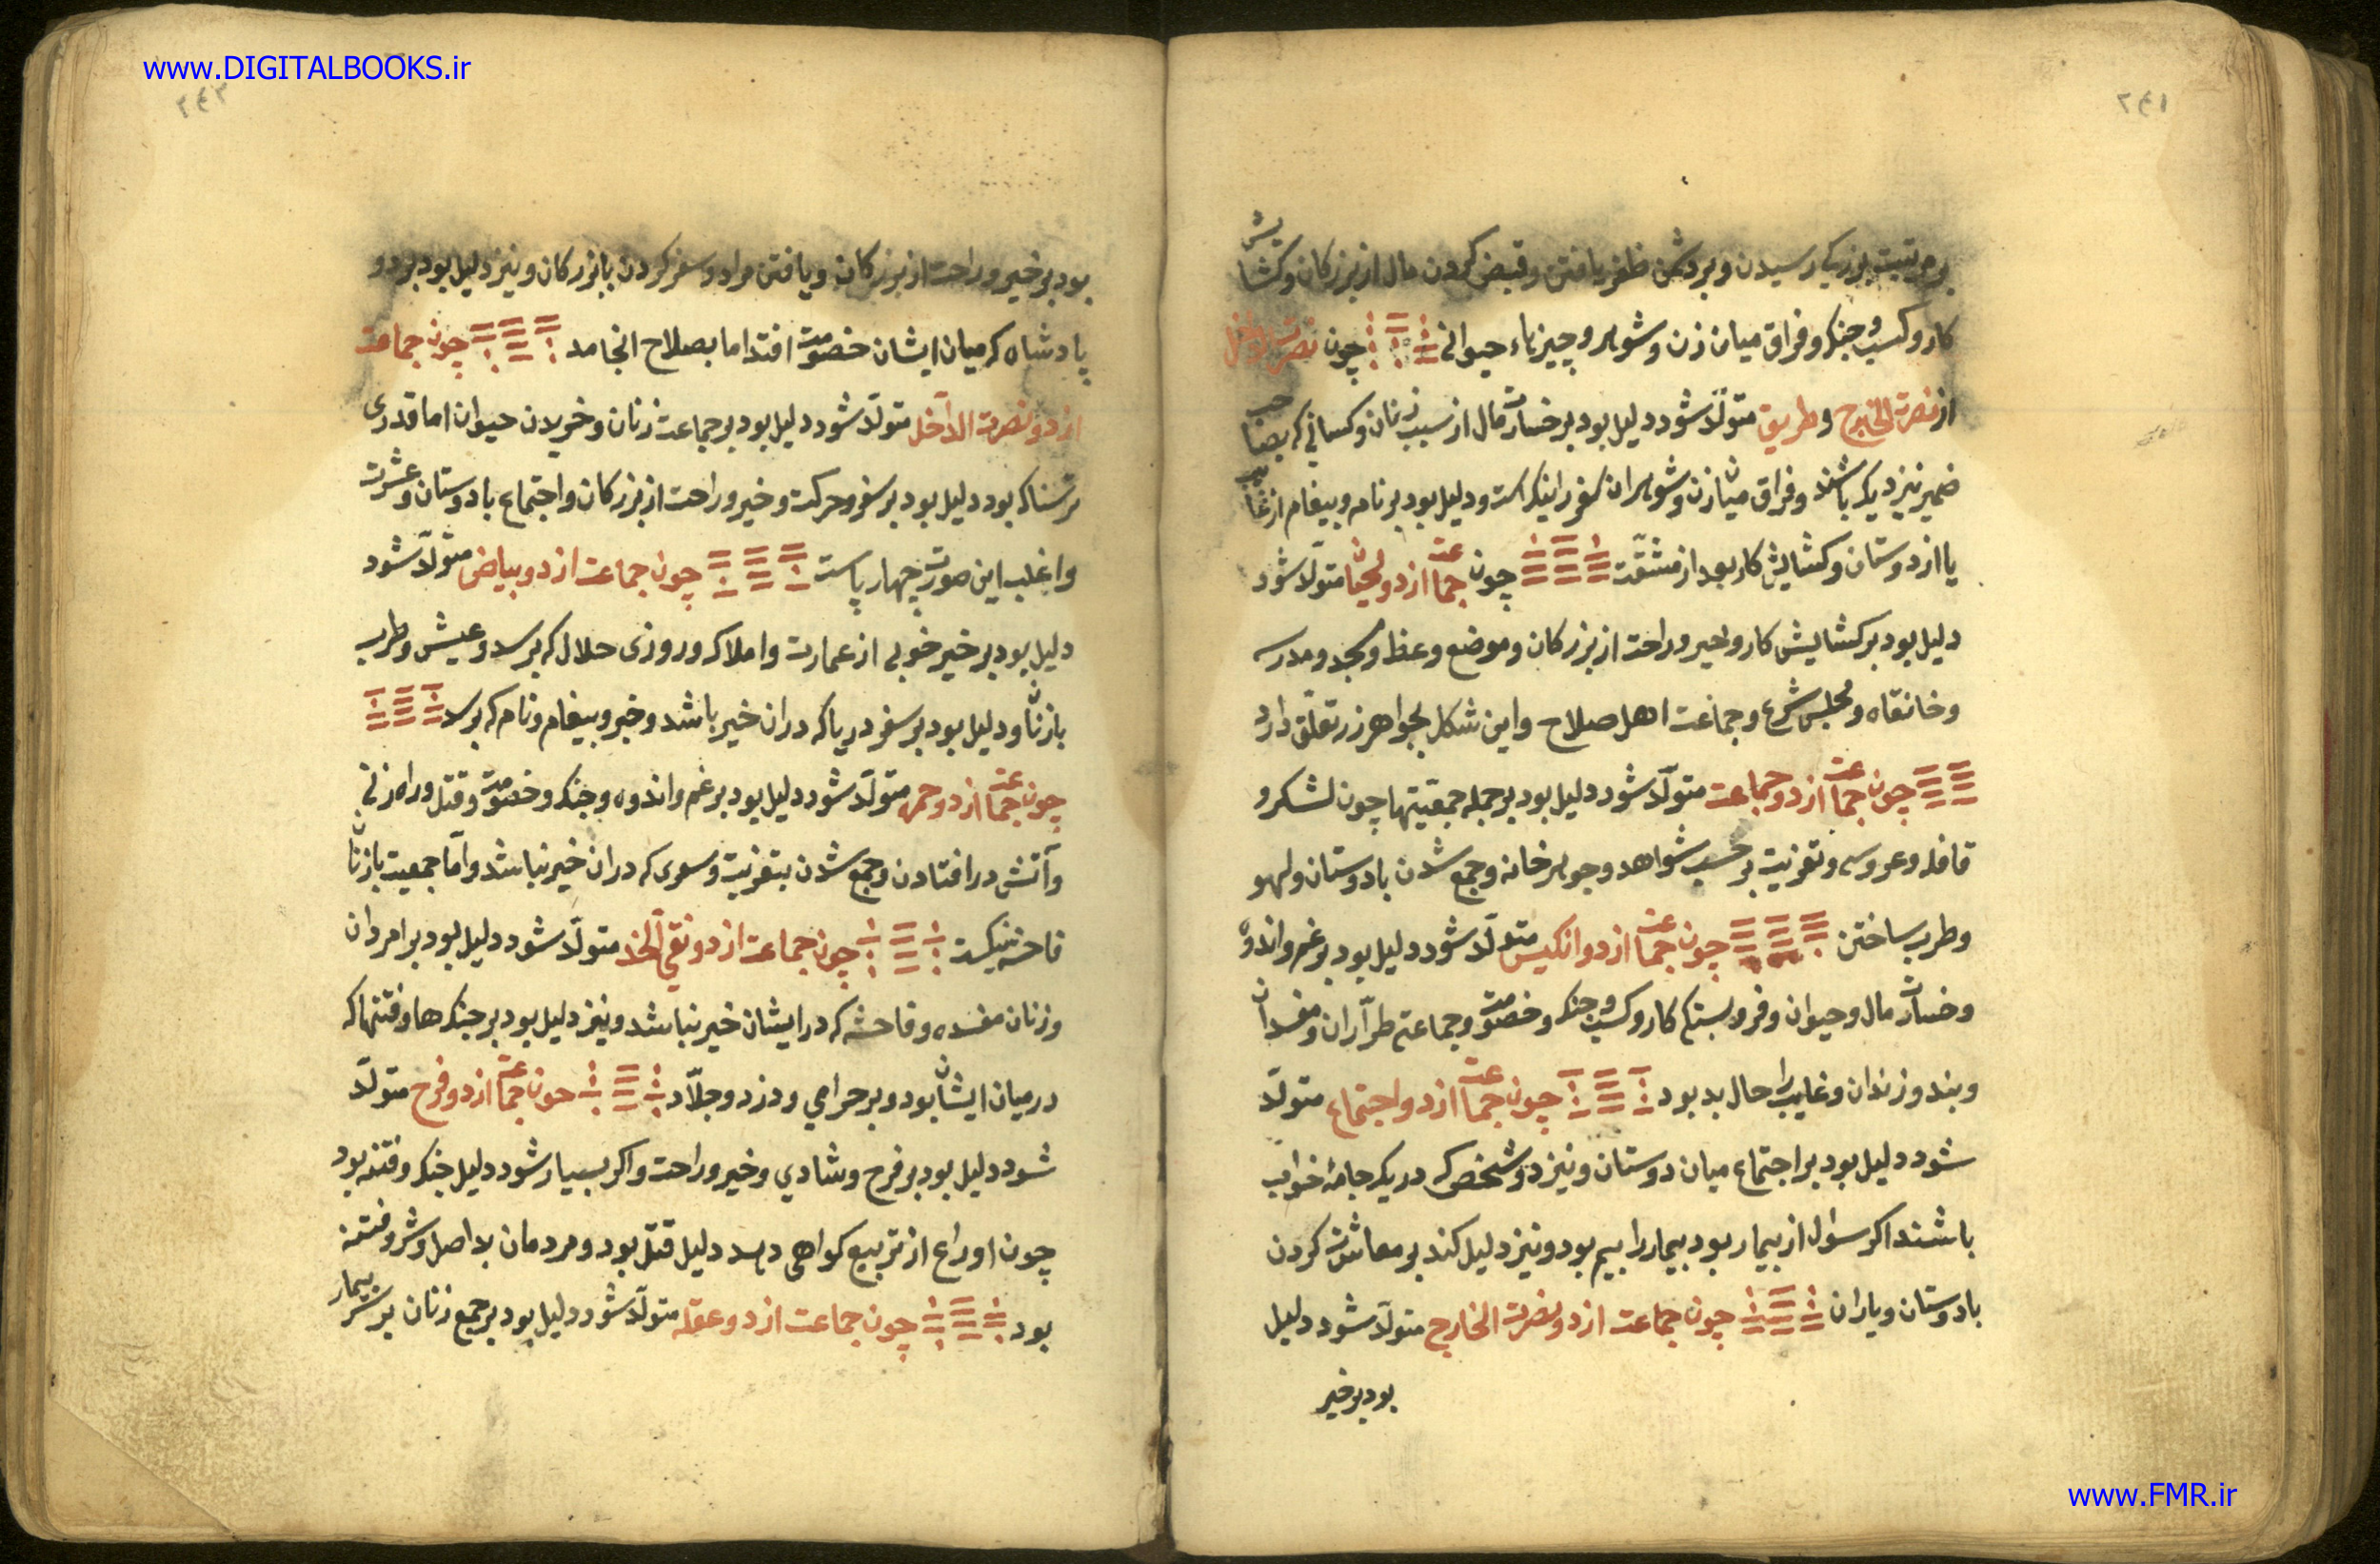 www.DIGITALBOOKS.ir
۲۴۱
بر مرتبت بزرگی رسیدن و بر دشمن ظفر یافتن و قبض کردن مال از بزرکان و کشایش
کار و کسب و جنک و فراق میان زن و شوهر و چیزهاء حیوانی چون نصرت الداخل
از نصرت الخارج و طریق متولّد شود دلیل بود بر خسارت مال از سبب زنان و کسانی که بصاحب
ضمیر نزدیک باشند و فراق میان زن و شوهر ان سفر را نیک است و دلیل بود بر نامه و بیغام از غایب
یا از دوستان و کشایش کار بعد از مشقّت چون جماعت از دو لحیان متولّد شود
دلیل بود بر کشایش کار و خیر و راحت از بزرکان و موضع وعظ و مسجد و مدرسه
و خانقاه و مجلس شرع و جماعت اهل صلاح و این شکل بجواهر زر تعلّق دارد
چون جماعت از دو جماعت متولّد شود دلیل بود بر جمله جمعیتها چون لشکر و
قافله و عروسی و تعزیت بر حسب شواهد و جوهر خانه و جمع شدن با دوستان و لهو
و طرب ساختن چون جماعت از دو انکیس متولّد شود دلیل بود بر غم و اندوه
و خسارت مال و حیوان و فروبستکی کار و کسب و جنک و خصومت و جماعتی طرّاران و مفسدان
و بند و زندان و غایب را حال بد بود چون جماعت از دو اجتماع متولّد
شود دلیل بود بر اجتماع میان دوستان و نیز دو شخص که در یک جامهٔ خواب
باشند اکر سؤل از بیمار بود بیمار را بیم بود و نیز دلیل کند بر معاشرت کردن
با دوستان و یاران چون جماعت از دو نصرت الخارج متولّد شود دلیل
بود بر خیر
۲۴۲
بود بر خیر و راحت از بزرکان و یافتن مراد و سفر کردن با بزرکان و نیز دلیل بود بر دو
پادشاه که میان ایشان خصومت افتد اما بصلاح انجامد چون جماعت
از دو نصرت الداخل متولّد شود دلیل بود بر جماعت زنان و خریدن حیوان اما قدری
ترسناک بود دلیل بود بر سفر و حرکت و خیر و راحت از بزرکان و اجتماع با دوستان و عشرت
و اغلب این صورت چهارپاست چون جماعت از دو بیاض متولّد شود
دلیل بود بر خیر خوبی از عمارت و املاک و روزی حلال که برسد و عیش و طرب
با زنان و دلیل بود بر سفر دریا که دران خیر باشد و خبر و بیغام و نامه که برسد
چون جماعت از دو حمره متولّد شود دلیل بود بر غم و اندوه و جنک و خصومت و قتل و راه زنی
و آتش در افتادن و جمع شدن بتعزیت و سوری که دران خیر نباشد و امّا جمعیت با زنان
فاحشه نیکست چون جماعت از دو نقی الخد متولّد شود دلیل بود بر امردان
و زنان مفسده و فاحشه که در ایشان خیر نباشد و نیز دلیل بود بر جنک ها و فتنها که
در میان ایشان بود و بر حرامی و دزد و جلّاد چون جماعت از دو فرح متولّد
شود دلیل بود بر فرح و شادی و خیر و راحت و اکر بسیار شود دلیل جنک و فتنه بود
چون او را ع از تربیع کواهی دهد دلیل قتل بود و مردمان بد اصل و شر و فتنه
بود چون جماعت از دو عقله متولّد شود دلیل بود بر جمع زنان بر سر بیمار
www.FMR.ir